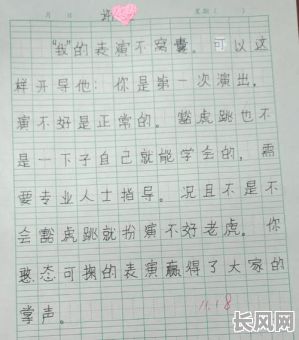 月 日 许 星期（ ）
“我”的表演不窝囊。可以这
样开导他：你是第一次演出，
演不好是正常的。豁虎跳也不
是一下子自己就能学会的，需
要专业人士指导。况且不是不
会豁虎跳就扮演不好老虎。你
憨态可掬的表演赢得了大家的
掌声。
11.18
长风网
cfw.cn